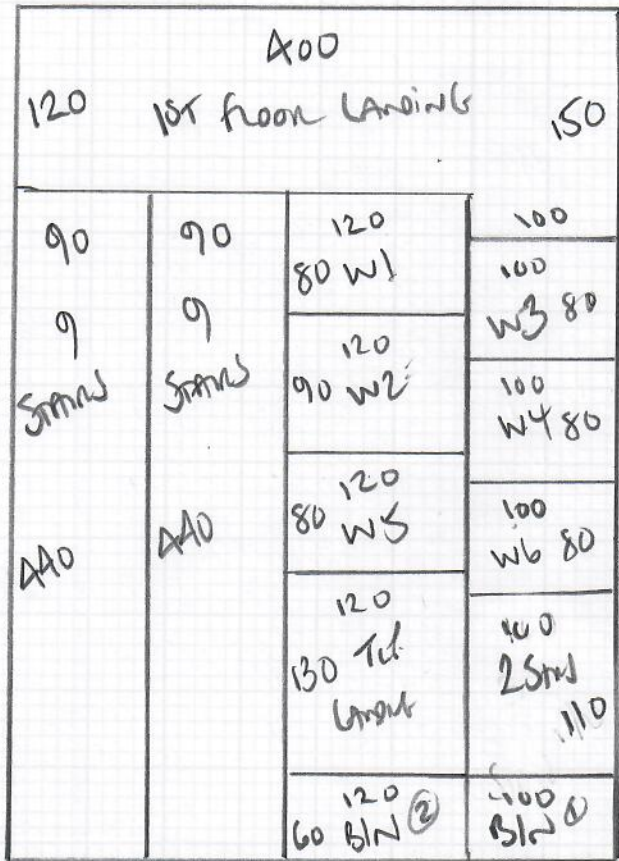 400
120 1ST FLOOR LANDING 150
90
9
STAIRS
440
90
9
STAIRS
440
120
80 W1
120
90 W2
120
80 W5
120
130
LANDING
120
60 BIN 2
100
100
W3 80
100
W4 80
100
W6 80
100
2 STAIRS
110
100
BIN 1